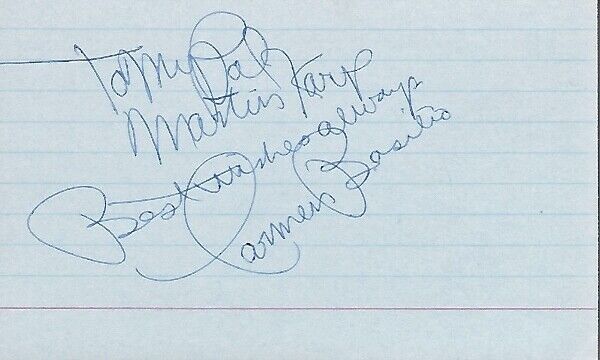 To My Pal
Martin Karp
Best Wishes always
Carmen Basilio